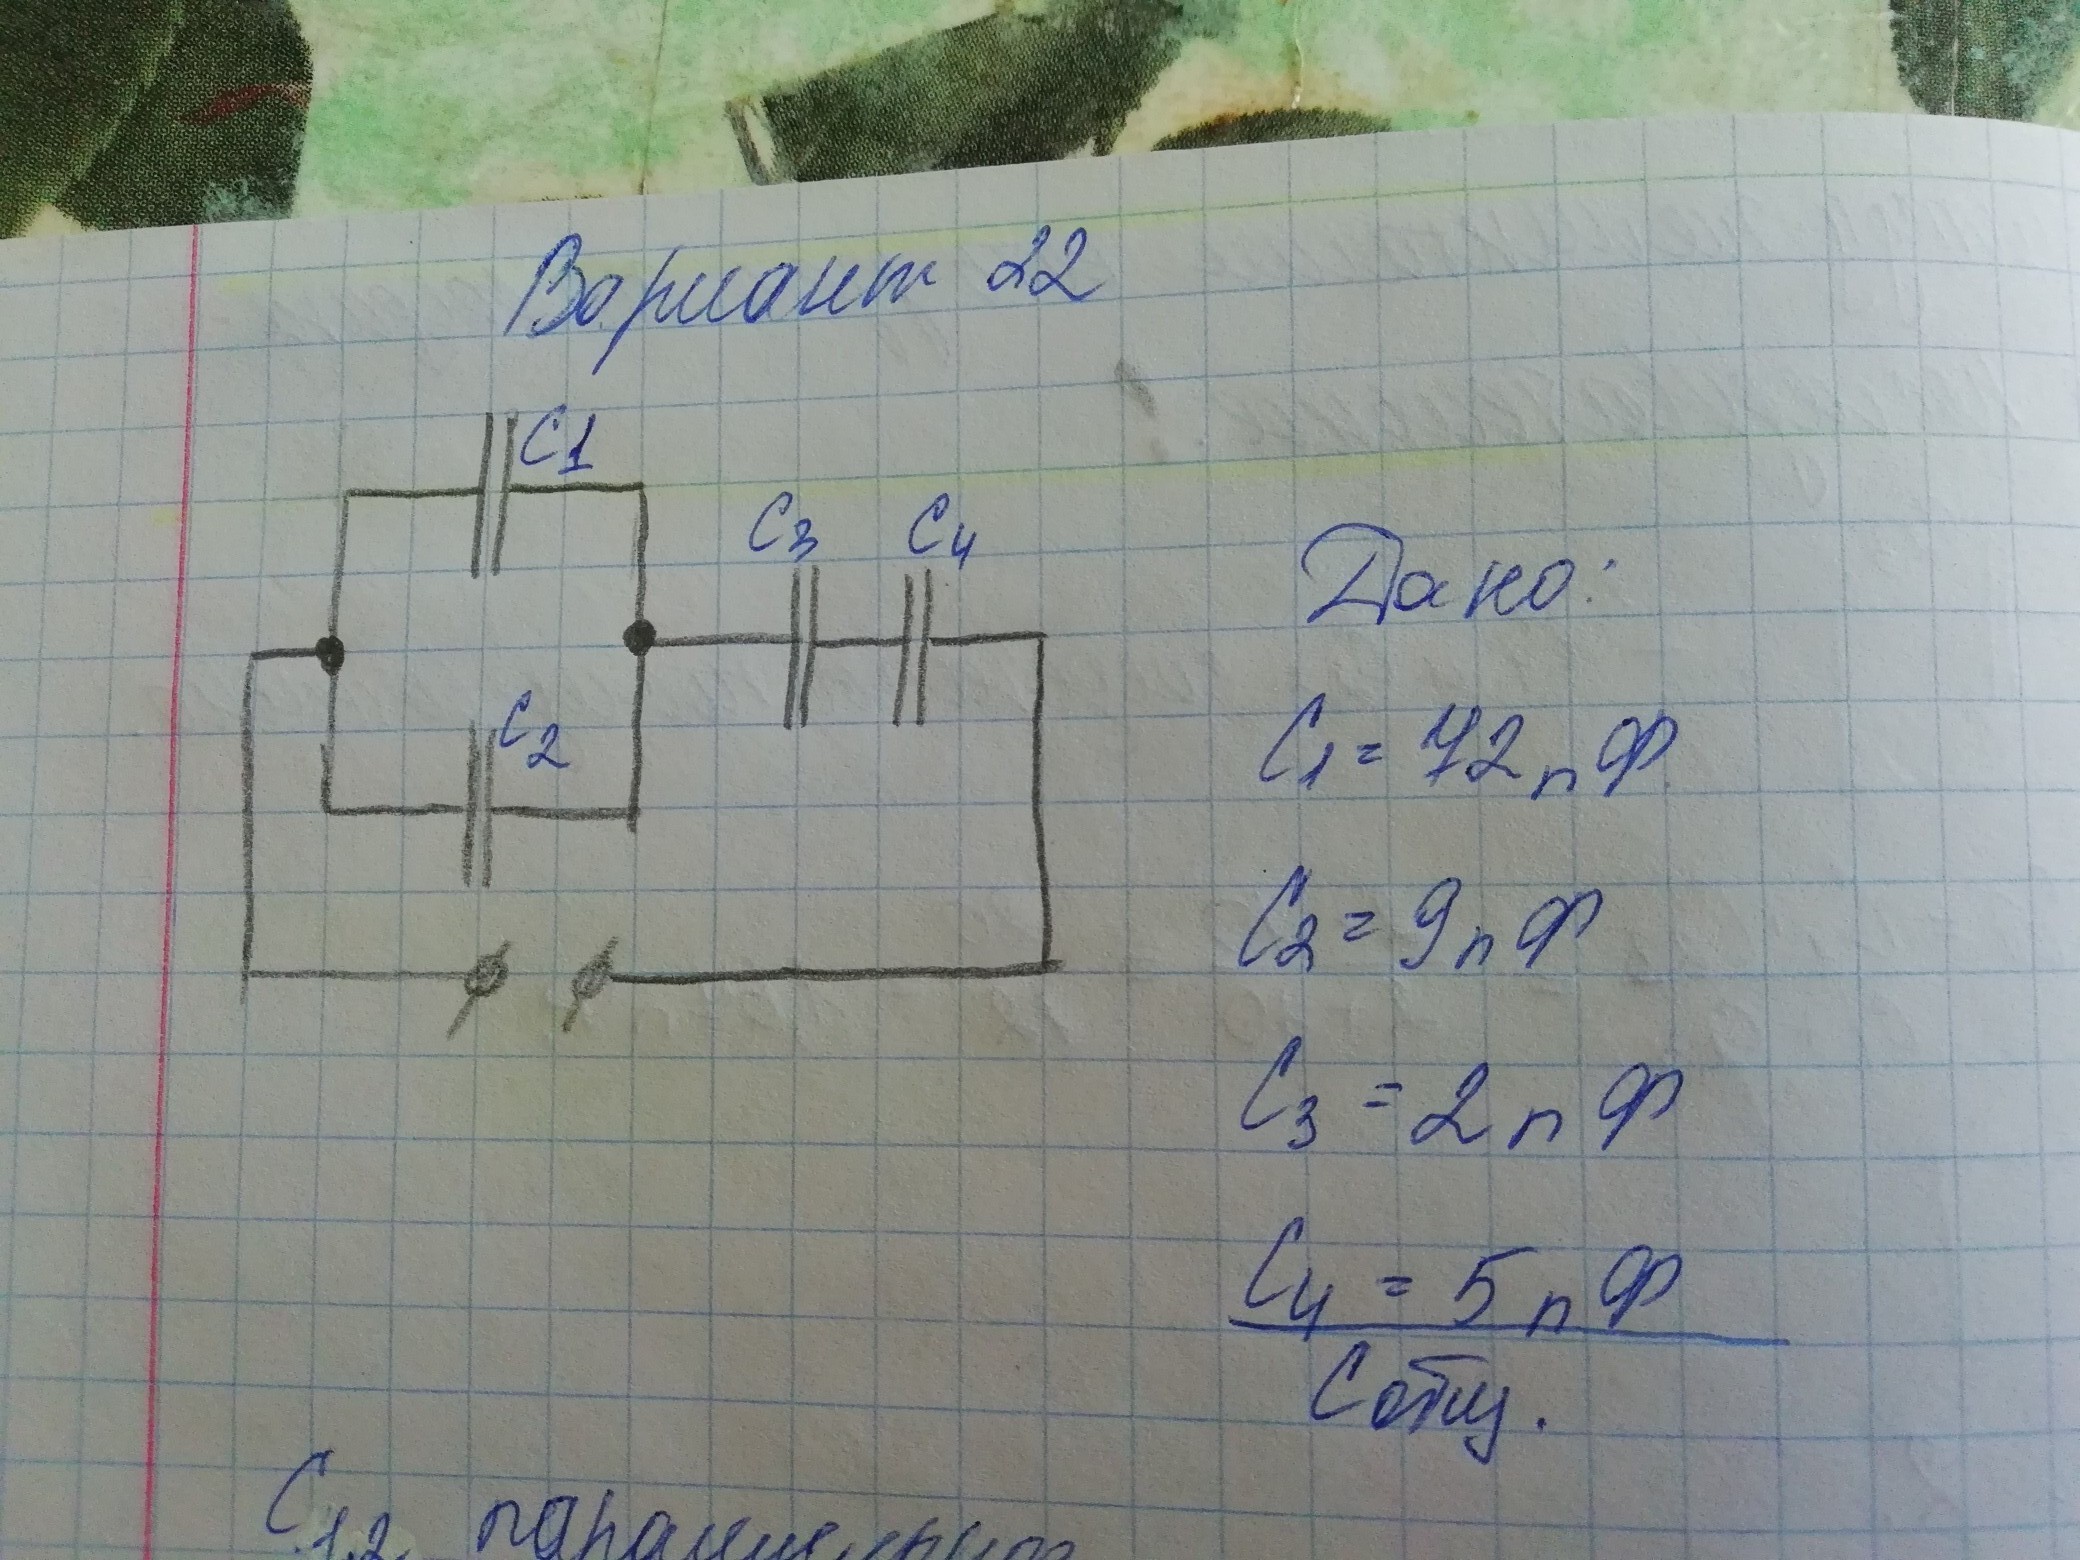 Вариант 22
C1
C3 C4
C2
Дано:
C1 = 72 пФ
C2 = 9 пФ
C3 = 2 пФ
C4 = 5 пФ
Cобщ.
C1.2